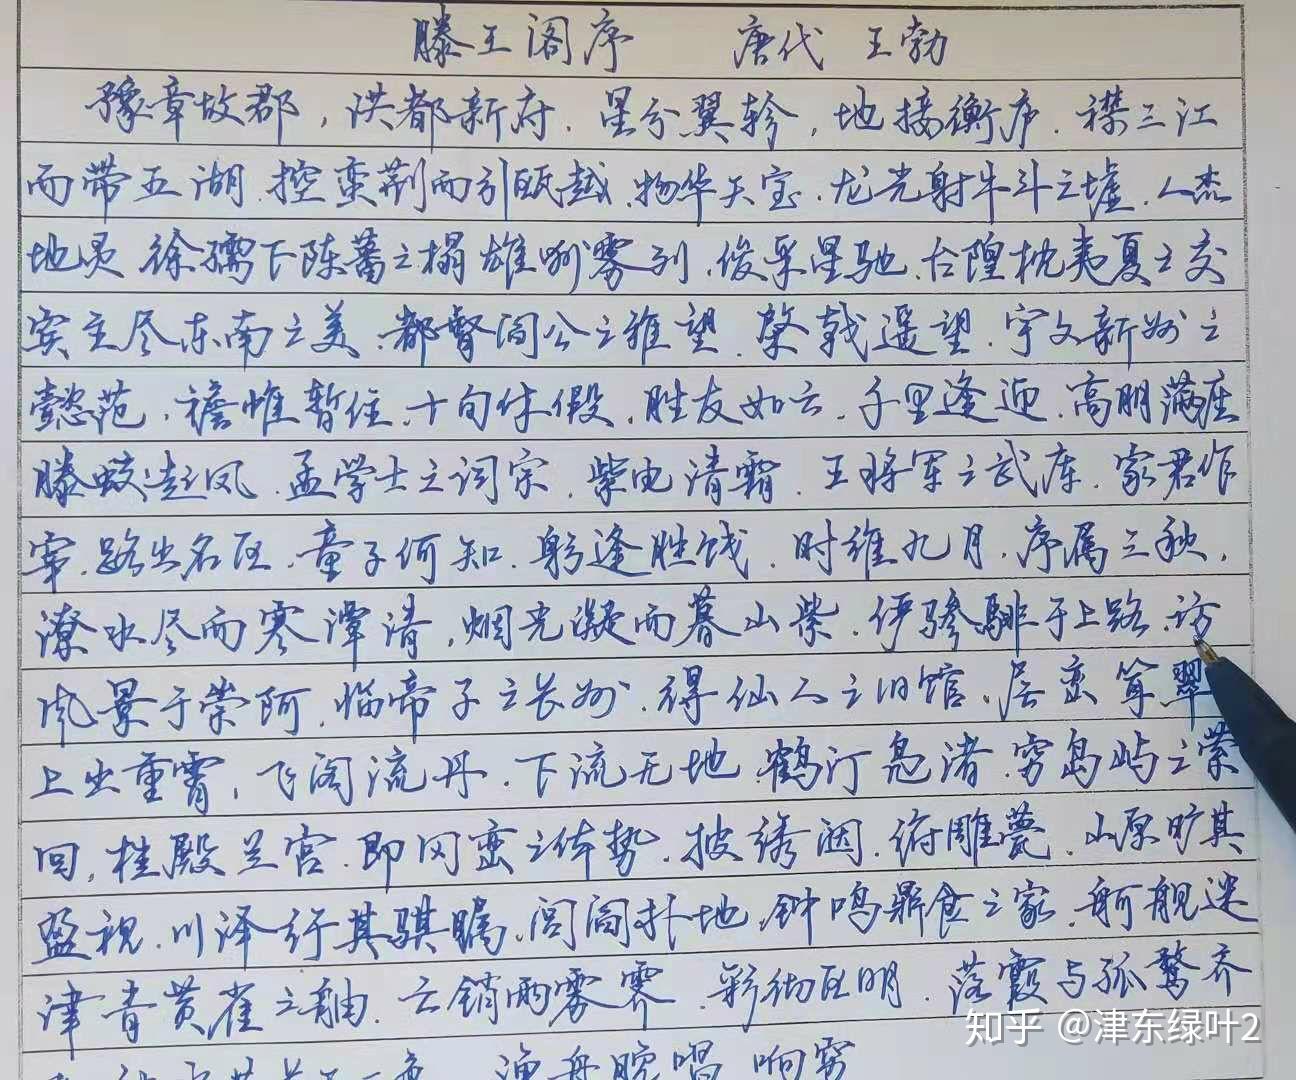 滕王阁序 唐代 王勃
豫章故郡，洪都新府．星分翼轸，地接衡庐．襟三江
而带五湖．控蛮荆而引瓯越．物华天宝．龙光射牛斗之墟．人杰
地灵 徐孺下陈蕃之榻 雄州雾列．俊采星驰．台隍枕夷夏之交
宾主尽东南之美．都督阎公之雅望．棨戟遥望．宇文新州之
懿范．襜帷暂住．十旬休假．胜友如云．千里逢迎．高朋满座
腾蛟起凤．孟学士之词宗．紫电清霜．王将军之武库．家君作
宰．路出名区．童子何知．躬逢胜饯．时维九月．序属三秋，
潦水尽而寒潭清，烟光凝而暮山紫．俨骖騑于上路．访
风景于崇阿．临帝子之长州．得仙人之旧馆．层峦耸翠
上出重霄，飞阁流丹．下流无地．鹤汀凫渚．穷岛屿之萦
回，桂殿兰宫．即冈峦之体势．披绣闼．俯雕甍．山原旷其
盈视．川泽行其骇瞩．闾阎扑地．钟鸣鼎食之家．舸舰迷
津青黄雀之轴．云销雨雾霁．彩彻区明．落霞与孤鹜齐
渔舟 唱 响穷
知乎 @津东绿叶2